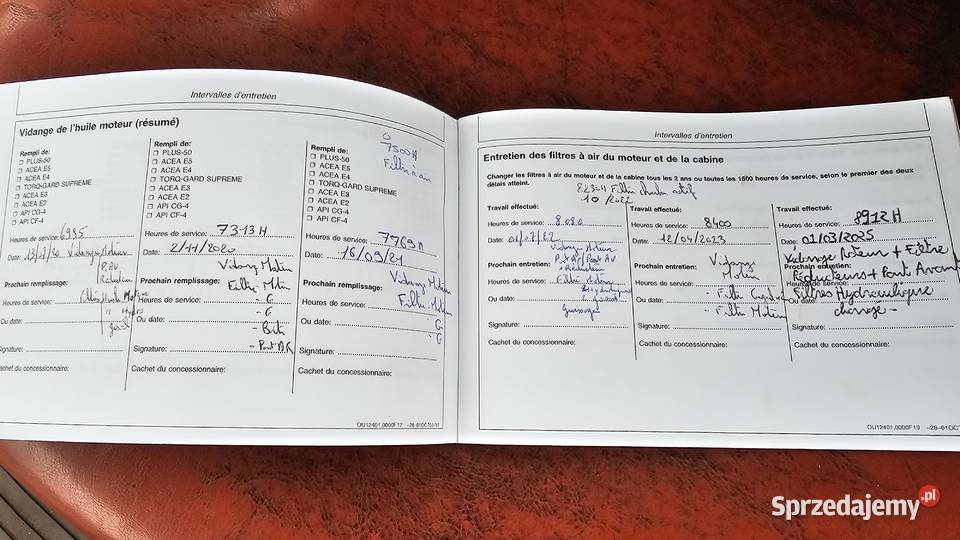 Intervalles d'entretien
Vidange de l'huile moteur (résumé)
Rempli de:
PLUS-50
ACEA E5
ACEA E4
TORQ-GARD SUPREME
ACEA E3
ACEA E2
API CG-4
API CF-4
Heures de service: 6935
Date: Vidange Moteur
P. AV
Réducteur
Prochain remplissage:
Heures de service:
Ou date:
Signature:
Cachet du concessionnaire:
Rempli de:
PLUS-50
ACEA E5
ACEA E4
TORQ-GARD SUPREME
ACEA E3
ACEA E2
API CG-4
API CF-4
Heures de service: 7313 H
Date: 2/11/2020
Vidange Moteur
Prochain remplissage: Filtre Moteur
Heures de service: - G
- G
Ou date:
- Boite
Signature: - Pont AR
Cachet du concessionnaire:
7500 H
Filtre a air
Rempli de:
PLUS-50
ACEA E5
ACEA E4
TORQ-GARD SUPREME
ACEA E3
ACEA E2
API CG-4
API CF-4
Heures de service: 7769 H
Date: 16/09/21
Vidange Moteur
Prochain remplissage:
Heures de service: Filtre Moteur
Ou date: - G
- G
Signature:
Cachet du concessionnaire:
OU12401,0000F17 -28-01OCT03-1/1
Intervalles d'entretien
Entretien des filtres à air du moteur et de la cabine
Changer les filtres à air du moteur et de la cabine tous les 2 ans ou toutes les 1500 heures de service, selon le premier des deux
délais atteint.
Filtre
10/2022
Travail effectué:
Heures de service: 8.080
Date:
Vidange Moteur
Pont AR/Pont AV
Prochain entretien: + Réducteur
Heures de service: Filtre Moteur
Hydraulique
Ou date:
Graissage
Signature:
Cachet du concessionnaire:
Travail effectué:
Heures de service: 8400
Date: 12/04/2023
Vidange
Prochain entretien: Moteur
Heures de service:
- Filtre
Ou date: - Filtre Moteur
Signature:
Cachet du concessionnaire:
Travail effectué:
Heures de service: 8912 H
Date: 01/03/2025
Vidange Moteur + Filtre
Prochain entretien:
Réducteurs + Pont Avant
Heures de service:
Filtres Hydraulique
Ou date: changé -
Signature:
Cachet du concessionnaire:
OU12401,0000F19 -28-01OCT
Sprzedajemy.pl